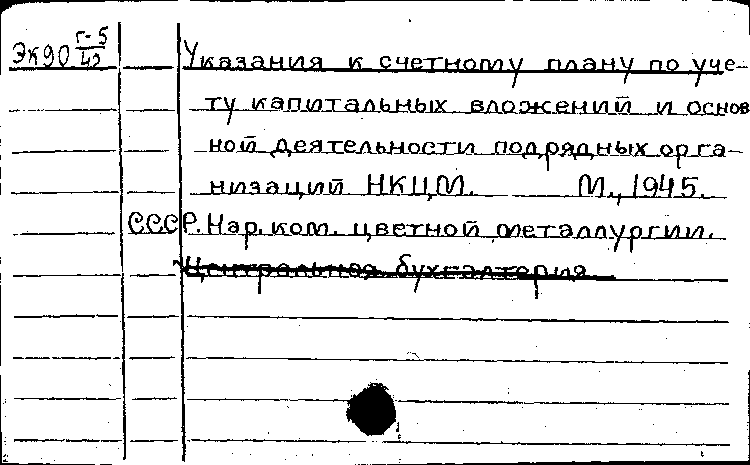 Эк90 г-5/49 Указания к счетному плану по уче-
ту капитальных вложений и основ
ной деятельности подрядных орга-
низаций НКЦМ. М., 1945.
СССР. Нар. ком. цветной металлургии.
Центральная бухгалтерия